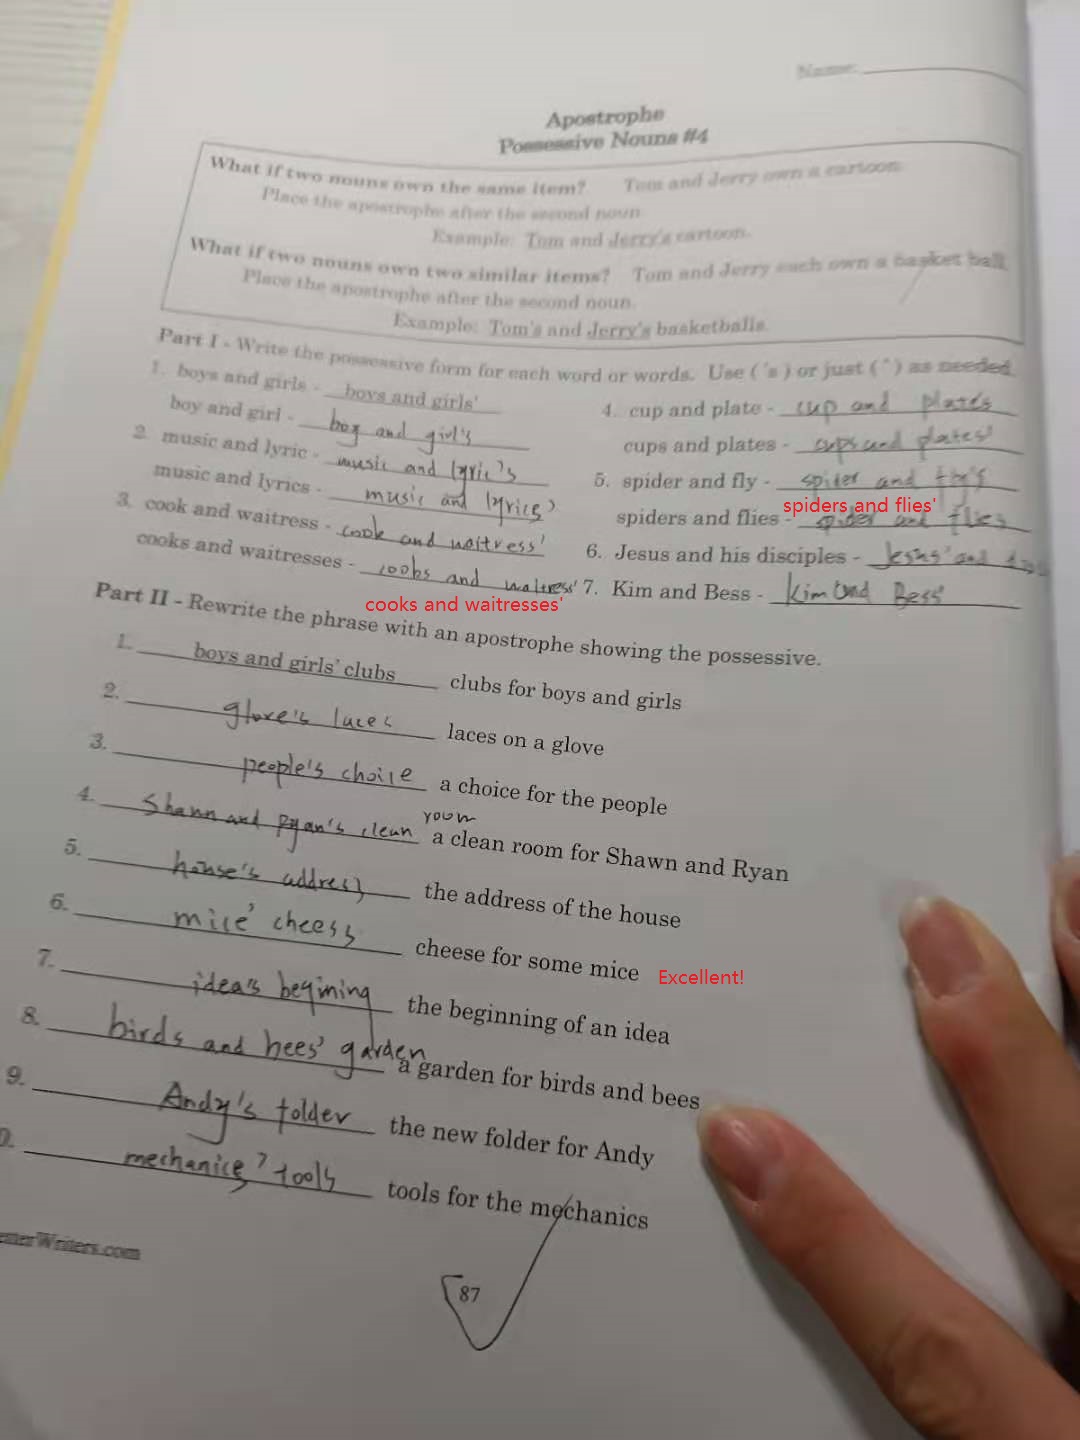 Name:
Apostrophe
Possessive Nouns #4
What if two nouns own the same item? Tom and Jerry own a cartoon.
Place the apostrophe after the second noun.
Example: Tom and Jerry's cartoon.
What if two nouns own two similar items? Tom and Jerry each own a basket ball.
Place the apostrophe after the second noun.
Example: Tom's and Jerry's basketballs.
Part I - Write the possessive form for each word or words. Use ( 's ) or just ( ' ) as needed.
1. boys and girls - boys and girls'
boy and girl - boy and girl's
2. music and lyric - music and lyric's
music and lyrics - music and lyrics'
3. cook and waitress - cook and waitress'
cooks and waitresses - cooks and waitress'
cooks and waitresses'
4. cup and plate - cup and plate's
cups and plates - cups and plates'
5. spider and fly - spider and fly's
spiders and flies'
spiders and flies - spider and flies
6. Jesus and his disciples - Jesus' and
7. Kim and Bess - Kim and Bess'
Part II - Rewrite the phrase with an apostrophe showing the possessive.
1. boys and girls' clubs clubs for boys and girls
2. glove's laces laces on a glove
3. people's choice a choice for the people
4. Shawn and Ryan's clean room a clean room for Shawn and Ryan
5. house's address the address of the house
6. mice' cheess cheese for some mice Excellent!
7. idea's begining the beginning of an idea
8. birds and bees' garden a garden for birds and bees
9. Andy's folder the new folder for Andy
mechanics' tools tools for the mechanics
87